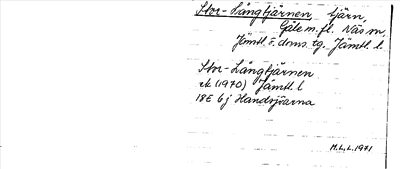 Stor-Långtjärnen, tjärn,
Gåle m. fl. Näs sn,
Jämtl. ö. doms. tg. Jämtl. l.
Stor-Långtjärnen
ek (1970) Jämtl. l
18E 6j Handsjöarna
M.L.L. 1971